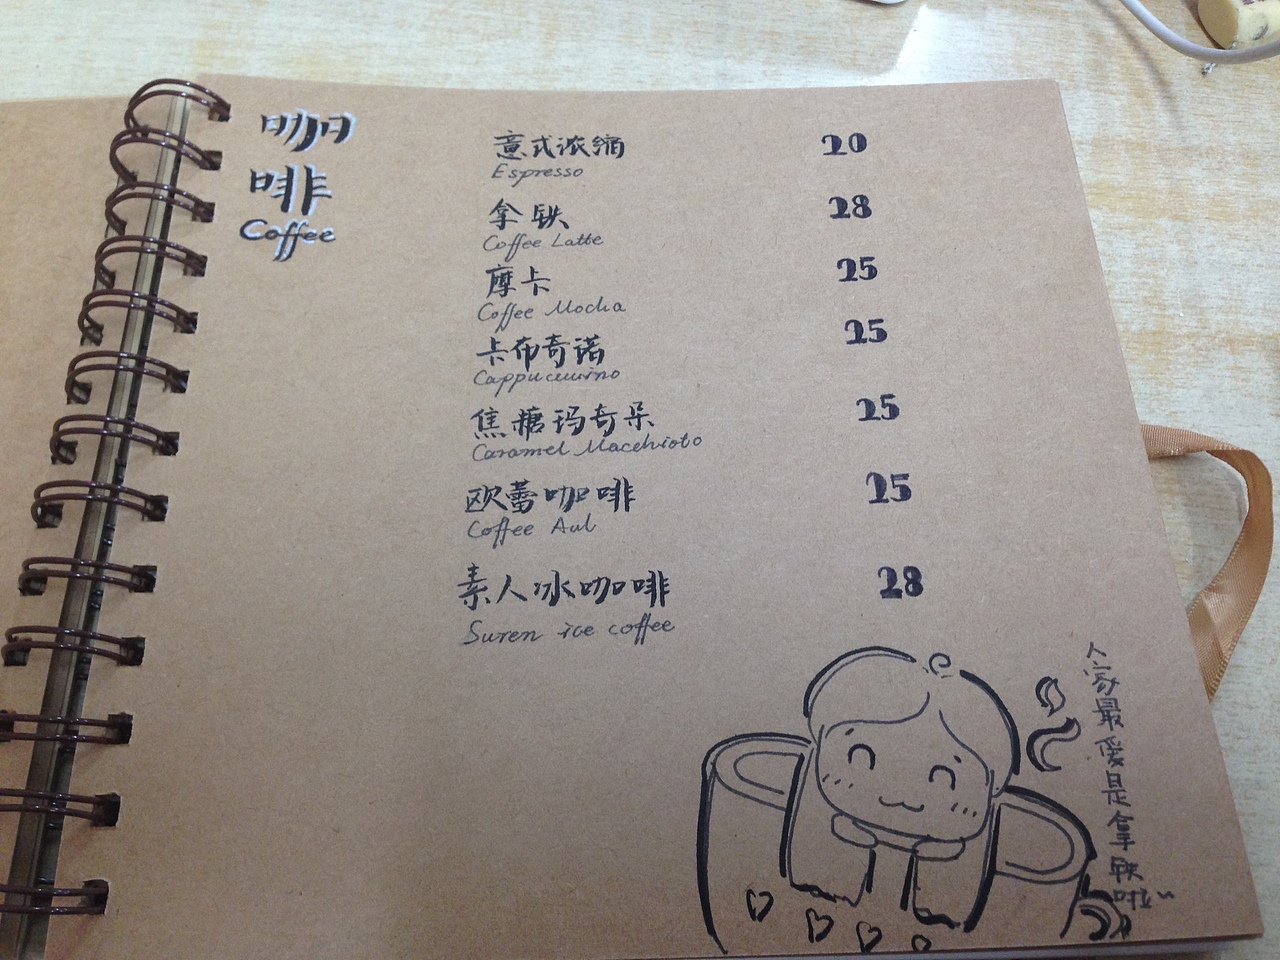 咖
啡
Coffee
意式浓缩 20
Espresso
拿铁 28
Coffee Latte
摩卡 25
Coffee Mocha
卡布奇诺 25
Cappucuuino
焦糖玛奇朵 25
Caramel Macchioto
欧蕾咖啡 25
Coffee Aul
素人冰咖啡 28
Suren ice coffee
人家最爱是拿铁啦~